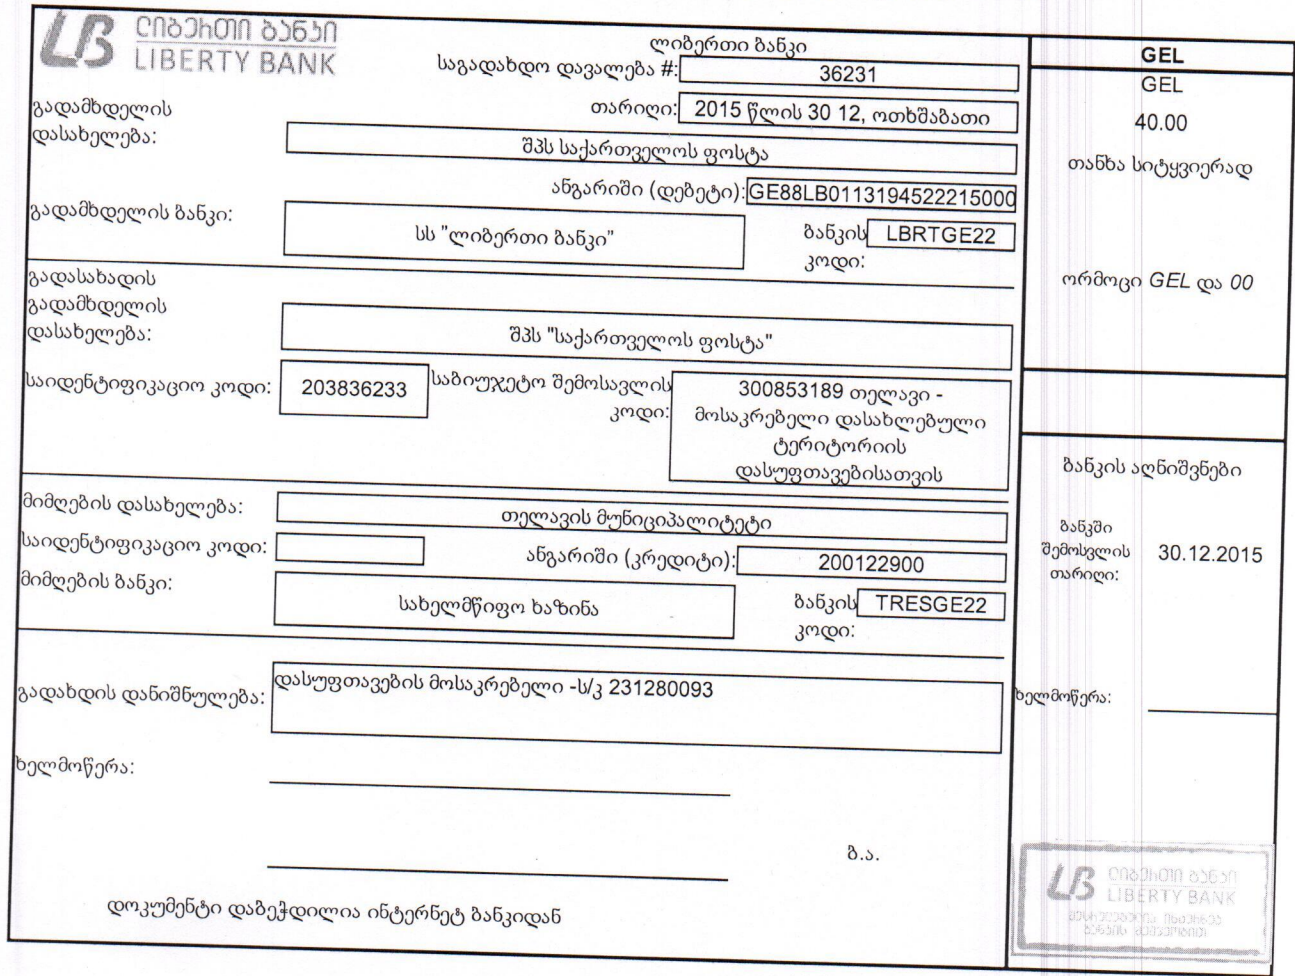 ლიბერთი ბანკი
LIBERTY BANK
ლიბერთი ბანკი
საგადახდო დავალება #: 36231
თარიღი: 2015 წლის 30 12, ოთხშაბათი
გადამხდელის
დასახელება:
შპს საქართველოს ფოსტა
ანგარიში (დებეტი): GE88LB0113194522215000
გადამხდელის ბანკი:
სს "ლიბერთი ბანკი"
ბანკის LBRTGE22
კოდი:
გადასახადის
გადამხდელის
დასახელება:
შპს "საქართველოს ფოსტა"
საიდენტიფიკაციო კოდი: 203836233
საბიუჯეტო შემოსავლის
კოდი:
300853189 თელავი -
მოსაკრებელი დასახლებული
ტერიტორიის
დასუფთავებისათვის
მიმღების დასახელება: თელავის მუნიციპალიტეტი
საიდენტიფიკაციო კოდი:
ანგარიში (კრედიტი): 200122900
მიმღების ბანკი:
სახელმწიფო ხაზინა
ბანკის TRESGE22
კოდი:
გადახდის დანიშნულება: დასუფთავების მოსაკრებელი -ს/კ 231280093
ხელმოწერა:
ბ.ა.
დოკუმენტი დაბეჭდილია ინტერნეტ ბანკიდან
GEL
GEL
40.00
თანხა სიტყვიერად
ორმოცი GEL და 00
ბანკის აღნიშვნები
ბანკში
შემოსვლის 30.12.2015
თარიღი:
ხელმოწერა:
ლიბერთი ბანკი
LIBERTY BANK